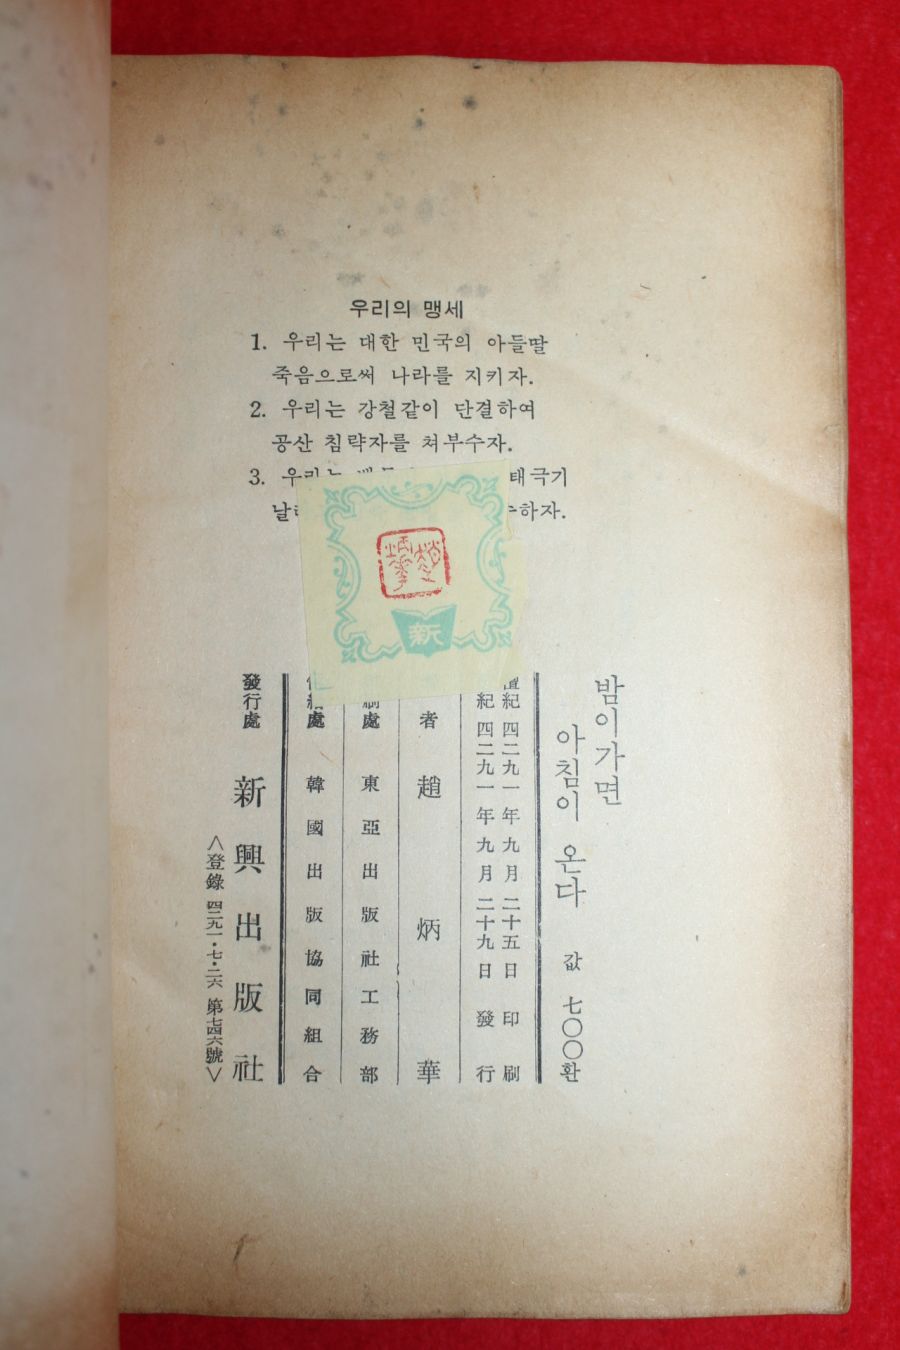 우리의 맹세
1. 우리는 대한 민국의 아들딸
죽음으로써 나라를 지키자.
2. 우리는 강철같이 단결하여
공산 침략자를 쳐부수자.
3. 우리는 태극기
날 하자.
新
밤이가면
아침이 온다 값 七〇〇환
紀 四二九一年 九月 二十五日 印刷
紀 四二九一年 九月 二十九日 發行
者 趙炳華
處 東亞出版社工務部
處 韓國出版協同組合
發行處 新興出版社
<登錄 四二九一·七·二六 第七四六號>